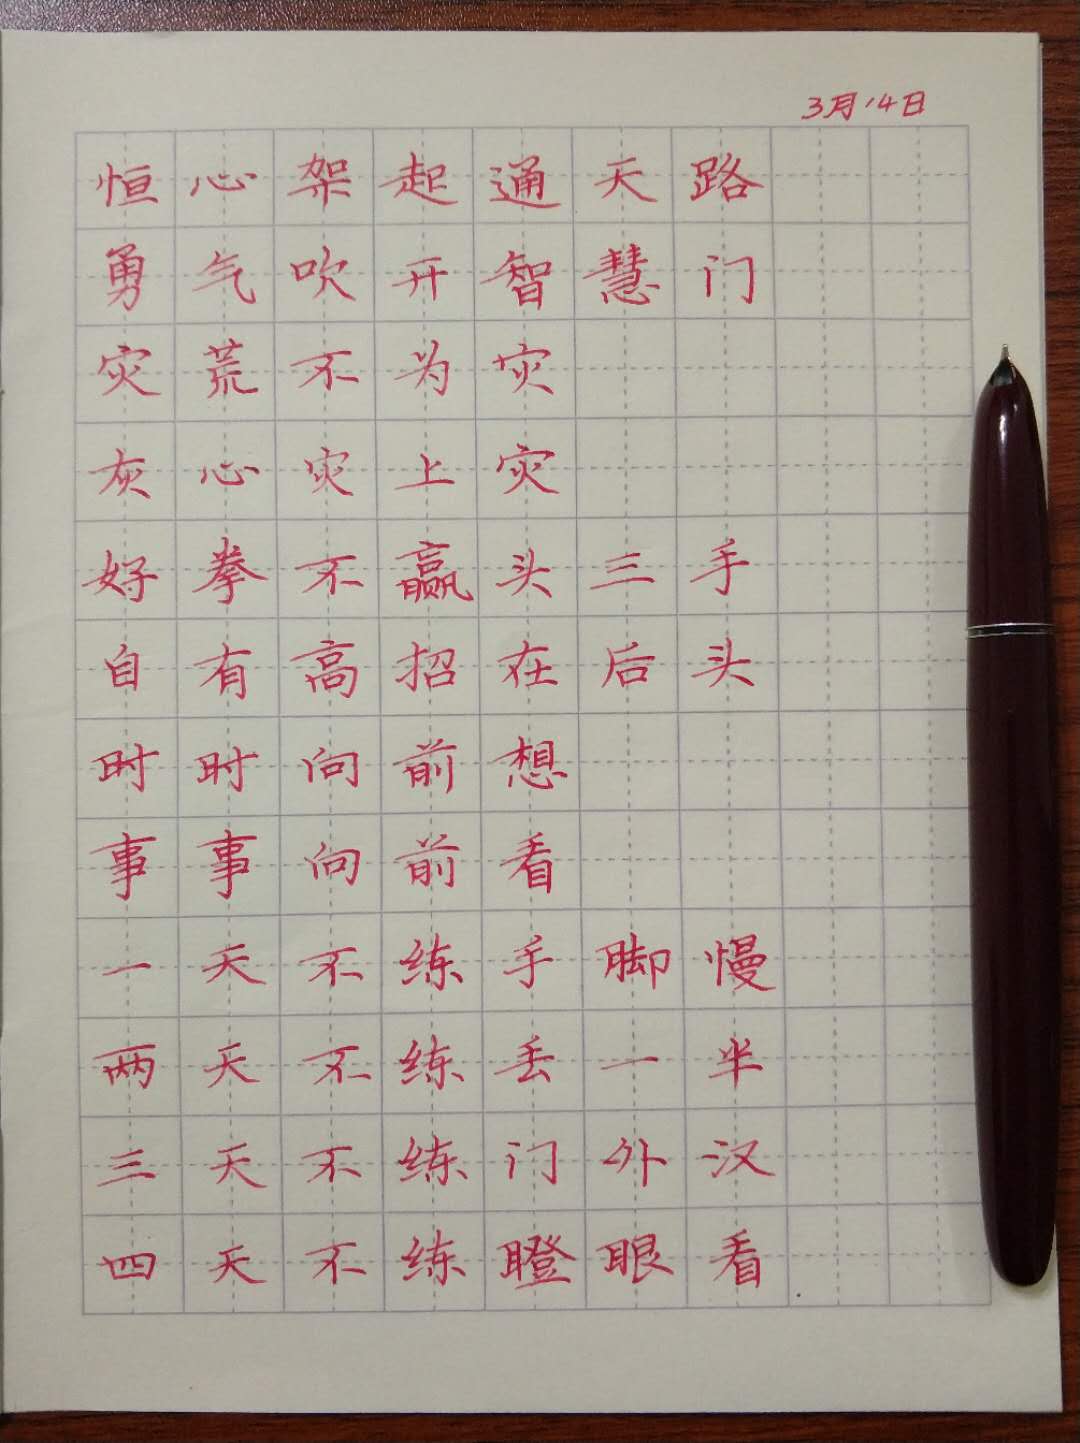 3月14日
恒心架起通天路
勇气吹开智慧门
灾荒不为灾
灰心灾上灾
好拳不赢头三手
自有高招在后头
时时向前想
事事向前看
一天不练手脚慢
两天不练丢一半
三天不练门外汉
四天不练瞪眼看